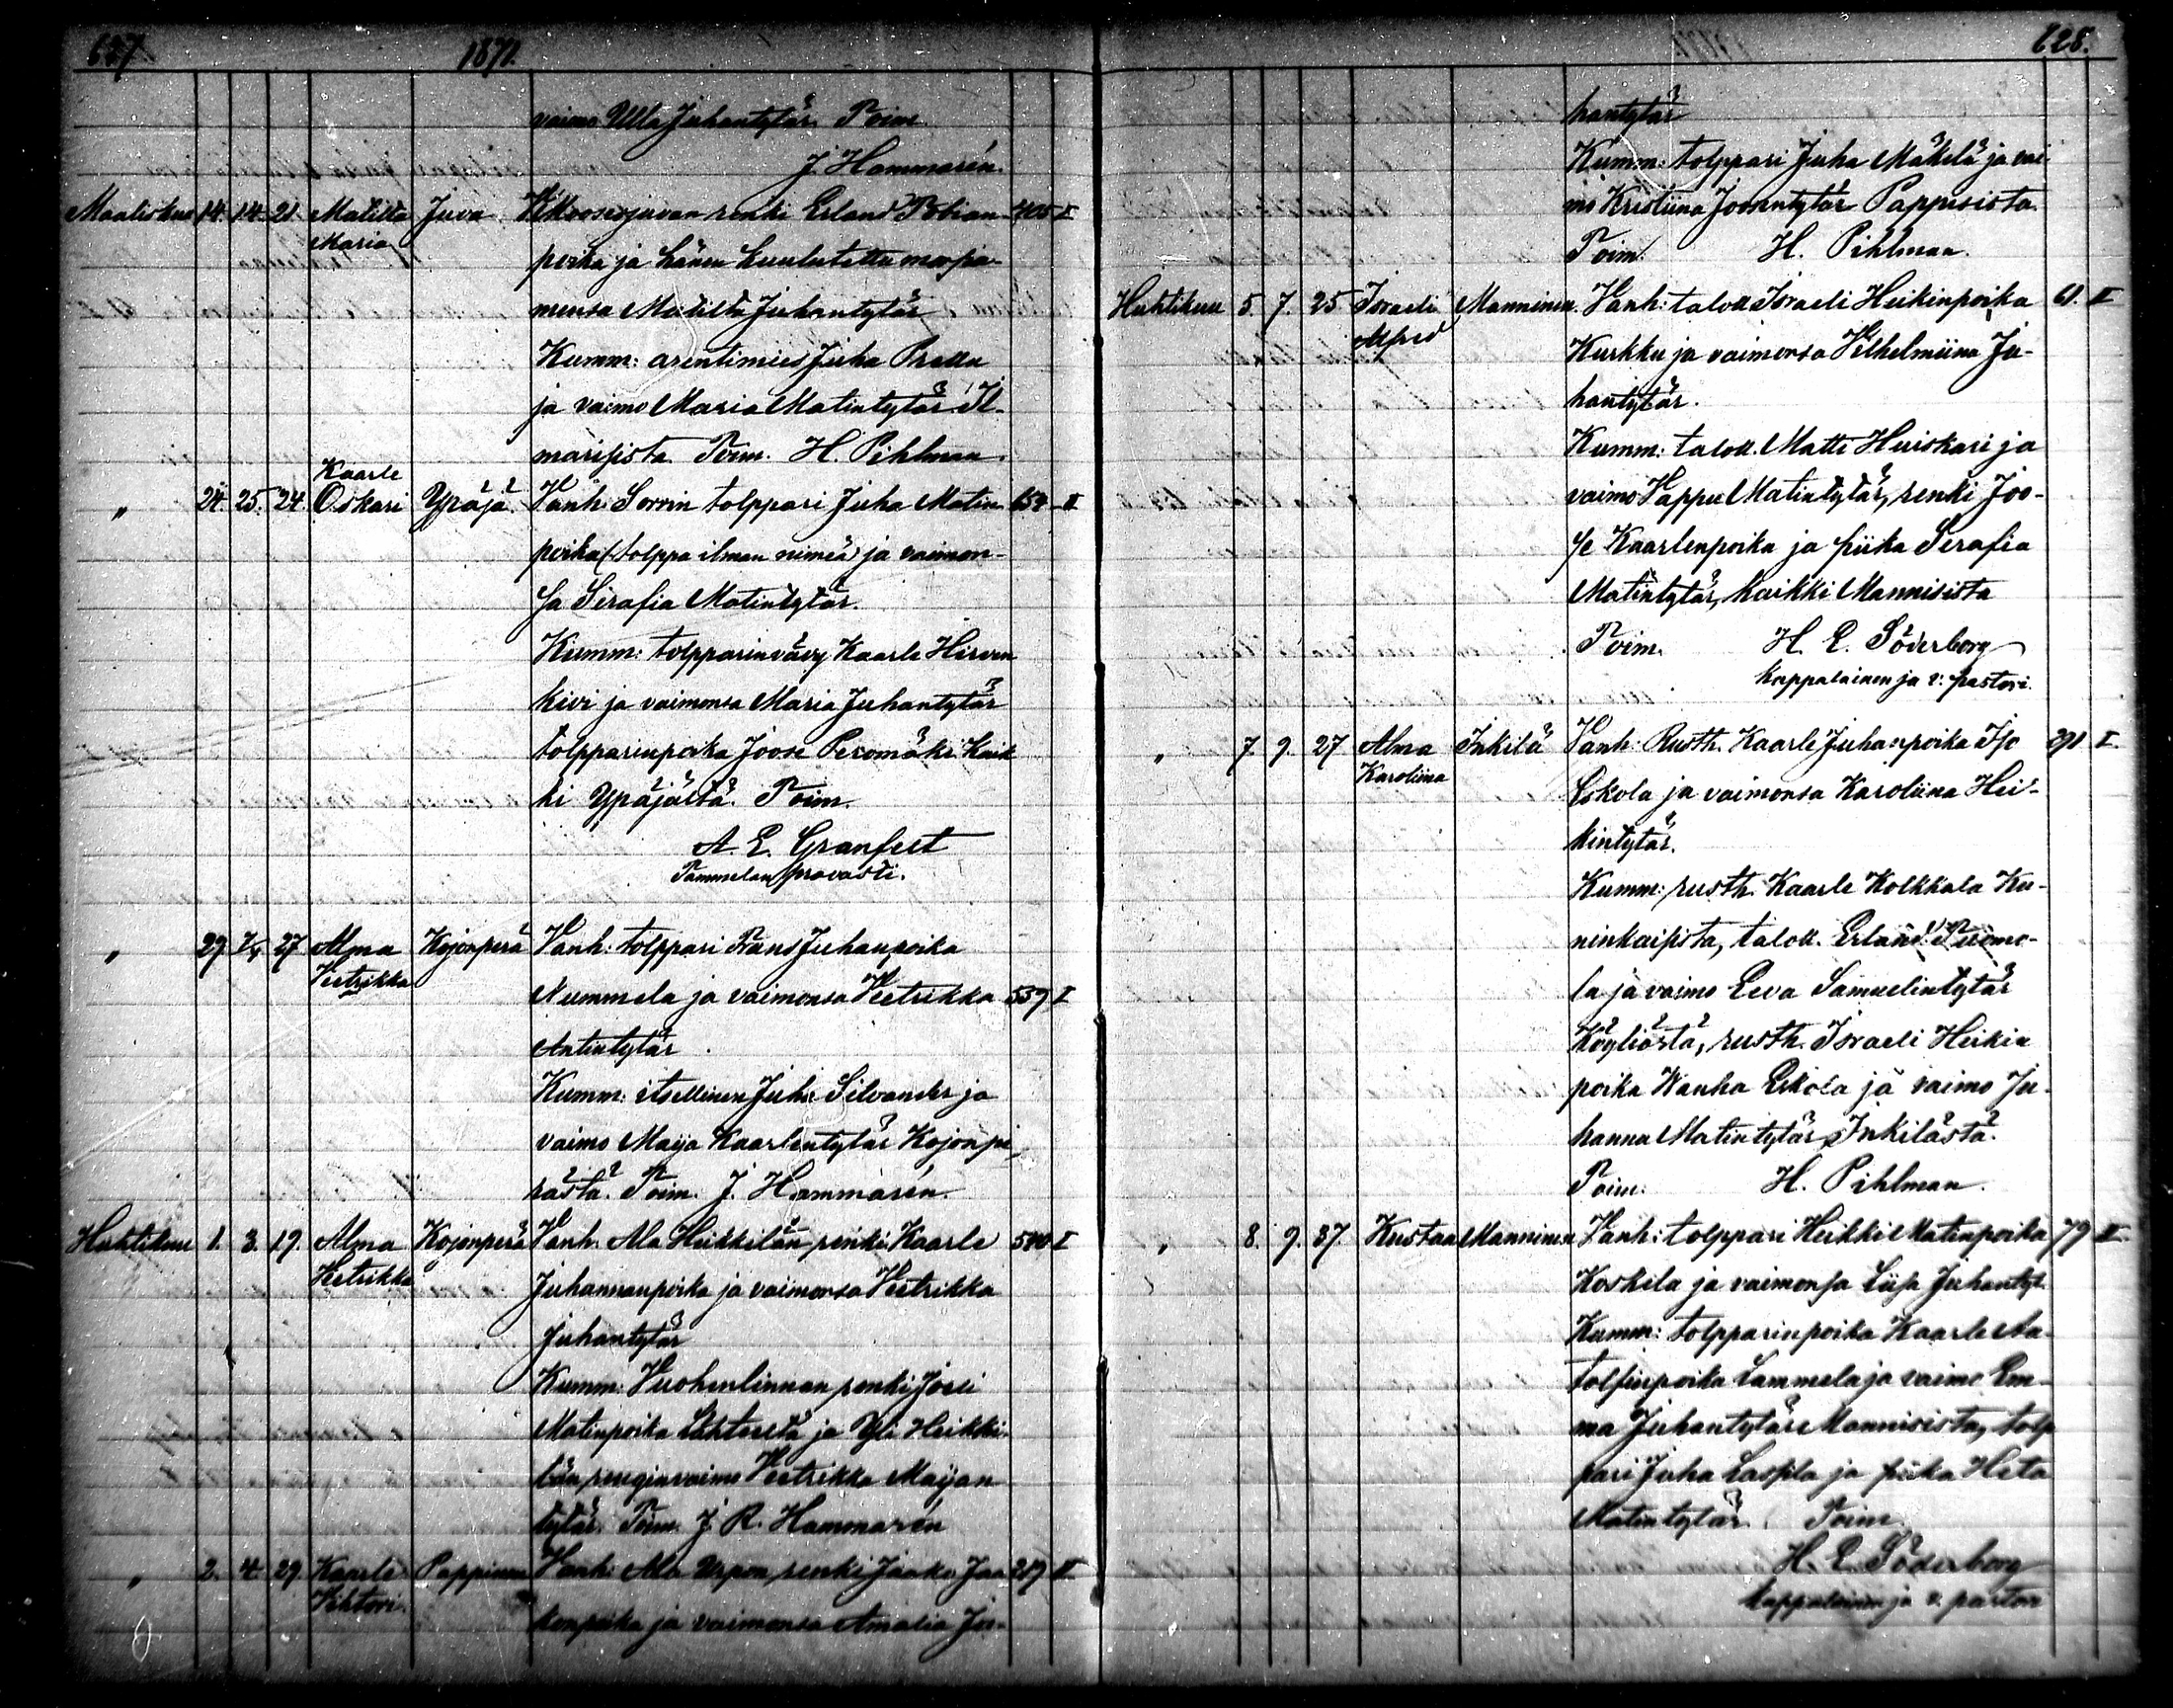 627 1871.
vaimo Ulla Juhantytär. Toim.
J. Hammarén.
Maaliskuu 14. 14. 21. Matilta Juva renki Erland Tobian 405 I
Maria poika ja hänen kuulutettu morsia-
mensa Matilta Juhantytär
Kumm: arentimies Juha Prattu
ja vaimo Maria Matintytär Il-
marisista. Toim. H. Pihlman.
Kaarle
„ 24. 25. 24. Oskari Ypäjä. Vanh: Sorrin tolppari Juha Matin 658 II
poika (tolppa ilman nimeä) ja vaimon-
sa Serafia Matintytär.
Kumm: tolpparinvävy Kaarle Hirven
kivi ja vaimonsa Maria Juhantytär
tolpparinpoika Joose Peromäki Kaik
ki Ypäjältä. Toim.
A. E. Granfelt
Tammelan provasti.
„ 29. 27. Alma Kojonperä Vanh: tolppari Frans Juhanpoika
Veetrikka Nummela ja vaimonsa Veetrikka 559 I
Antintytär.
Kumm: itsellinen Juha Silvander ja
vaimo Maija Kaarlentytär Kojonpe-
rästä. Toim. J. Hammarén.
Huhtikuu 1. 3. 19. Alma Kojonperä Vanh. Ala Heikkilän renki Kaarle 580 I
Veetrikka Juhannanpoika ja vaimonsa Veetrikka
Juhantytär
Kumm: Vuohenlinnan renki Joeli
Matinpoika ja Yli Heikki-
län renginvaimo Veetrikka Maijan
tytär. Toim. J. R. Hammarén
„ 2. 4. 29. Kaarle Pappinen Vanh: Ala Uspon renki Jaako Jaa 219 II
Vihtori. konpoika ja vaimonsa Amalia Ju-
628.
hantytär
Kumm: tolppari Juha Mäkelä ja vai-
mo Kristiina Joosentytär Pappisista.
Toim. H. Pihlman.
Huhtikuu 5. 7. 25. Israeli Manninen. Vanh: taloll. Israeli Heikinpoika 61. II
Alfred Kurkku ja vaimonsa Vilhelmiina Ju-
hantytär.
Kumm: taloll. Matti Huiskari ja
vaimo Vappu Matintytär, renki Joo-
se Kaarlenpoika ja piika Serafia
Matintytär, kaikki Mannisista
Toim. H. E. Söderborg
kappalainen ja v: pastori.
„ 7. 9. 27. Alma Inkilä Vanh: Rusth. Kaarle Juhanpoika Iso 291 I.
Karoliina Eskola ja vaimonsa Karoliina Hei-
kintytär.
Kumm: rusth. Kaarle Kolkkala Ku-
ninkaisista, taloll. Erland Tuomo-
la ja vaimo Eeva Samuelintytär
Köyliöstä, rusth. Israeli Heikin
poika Wanha Eskola ja vaimo Ju-
hanna Matintytär Inkilästä.
Toim: H. Pihlman.
„ 8. 9. 37. Kustaa Manninen Vanh: tolppari Heikki Matinpoika 79 II
Koskela ja vaimonsa Liisa Juhantyt.
Kumm: tolpparinpoika Kaarle Aa-
tolfinpoika Lammela ja vaimo Em-
ma Juhantytär Mannisista, tolp
pari Juha Lassila ja piika Heta
Matintytär. Toim.
H. E. Söderborg
kappalainen ja v. pastori